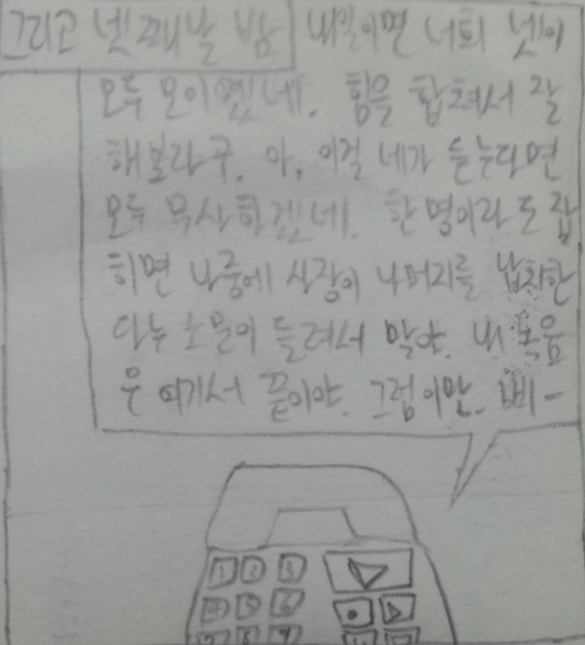 그리고 넷째날 밤
내일이면 너희 넷이
모두 모이겠네. 힘을 합쳐서 잘
해보라구. 아, 이걸 네가 듣는다면
모두 무사하겠네. 한 명이라도 잡
히면 나중에 사장이 나머지를 납치한
다는 소문이 들려서 말야. 내 녹음
은 여기서 끝이야. 그럼 이만. 삐-
1 2 3
4 5 6
7 8 9